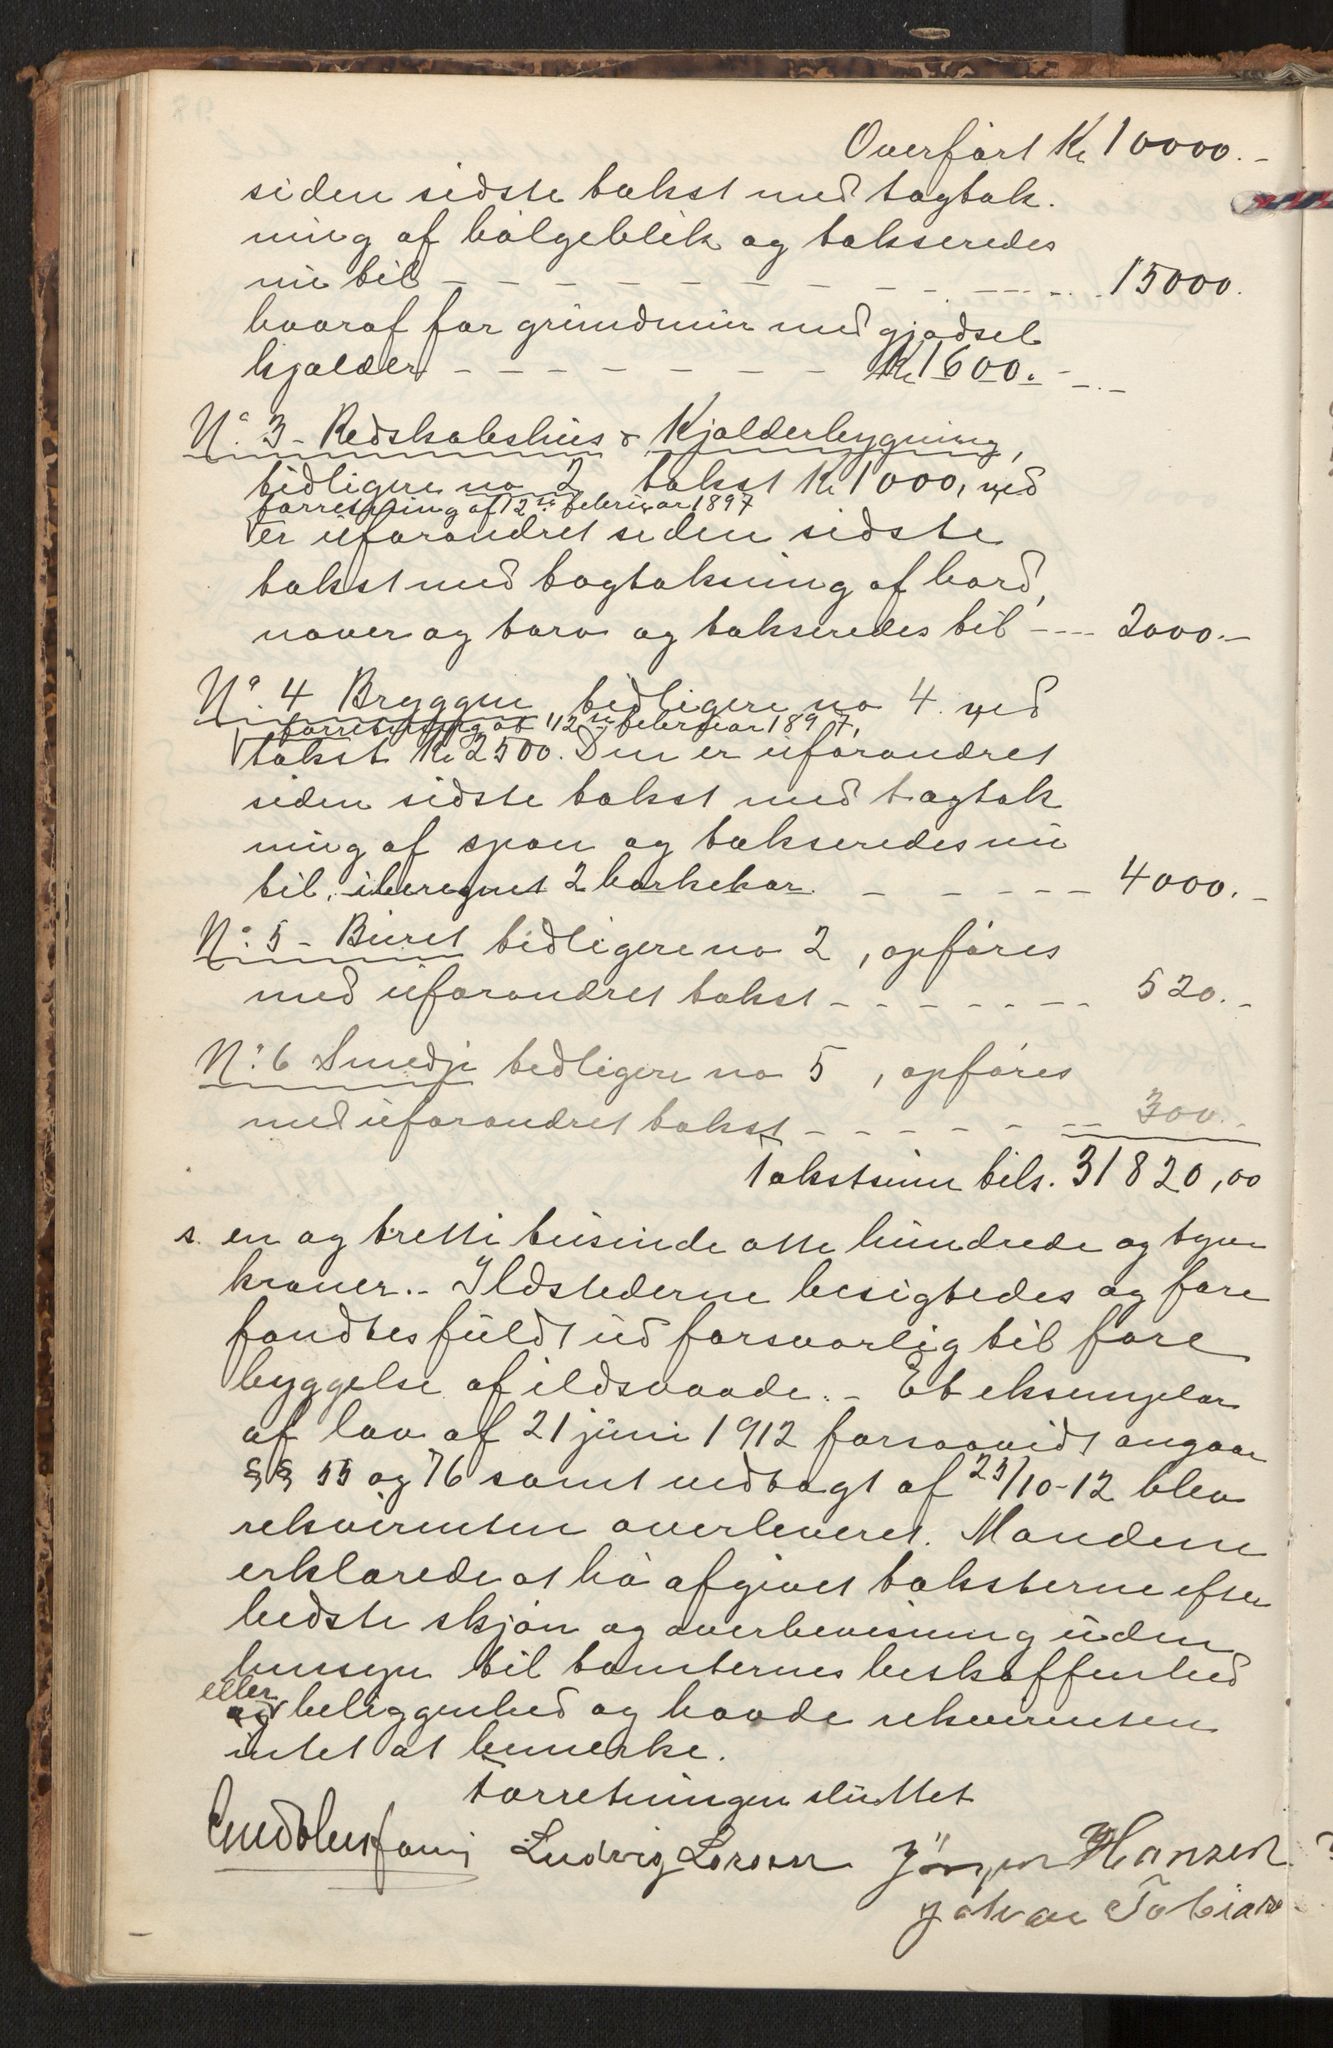 Overført Kr 10000.-
siden sidste takst med tagtæk-
ning af bølgeblik og takseredes
nu til - - - - - - - - - - 15000.
hvoraf for grundmur med gjødsel-
kjælder - - - - - - - Kr 1600.-
No. 3 - Redskabshus & Kjælderbygning,
tidligere no 2 takst Kr 1000, ved
forretning af 12te februar 1897
er uforandret siden sidste
takst med tagtækning af bord,
næver og torv og takseredes til ---- 2000.-
No. 4 Bryggen tidligere no 4. ved
forretning af 12te februar 1897,
takst Kr 2500. Den er uforandret
siden sidste takst med tagtæk
ning af spon og takseredes nu
til, iberegnet 2 barkekar. - - - - - 4000.-
No. 5 - Buret tidligere no 2, opføres
med uforandret takst - - - - - - 520.-
No. 6 Smedje tidligere no 5, opføres
med uforandret takst - - - - - - 300.-
Takstsum tils. 31820,00
s. en og tretti tusinde otte hundrede og tyve
kroner.- Ildstederne besigtedes og fore
fandtes fuldt ud forsvarlig til fore
byggelse af ildsvaade. - Et eksemplar
af lov af 21 juni 1912 forsaavidt angaar
§§ 55 og 76 samt vedtægt af 25/10-12 blev
rekvirenten overleveret. Mændene
erklærede at ha afgivet taksterne efter
bedste skjøn og overbevisning uden
hensyn til tomternes beskaffenhed
eller
og beliggenhed og havde rekvirenten
intet at bemerke.
Forretningen sluttet
Ludvig Larsen Jörgen Hansen
Johan Tobias